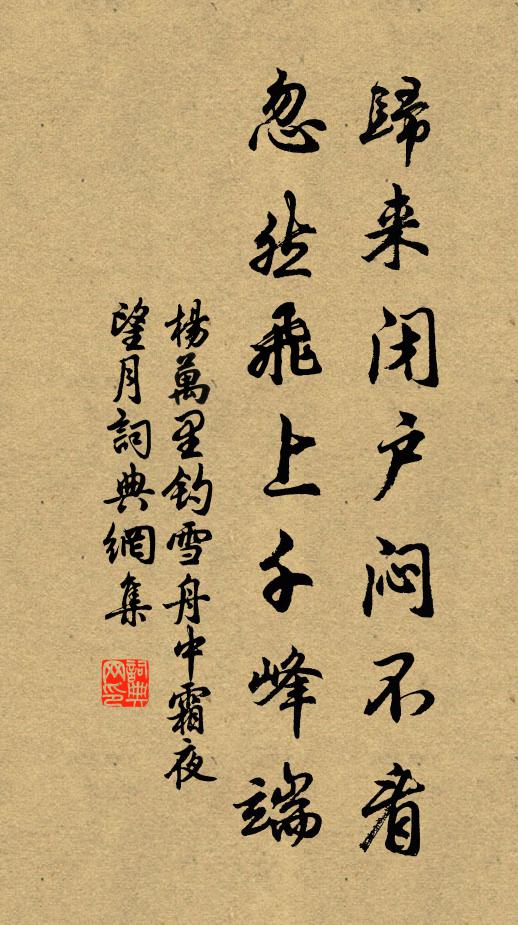 歸来闭户闷不看
忽然飛上千峰端
楊萬里钓雪舟中霜夜
望月詞典網集
詞典
网印